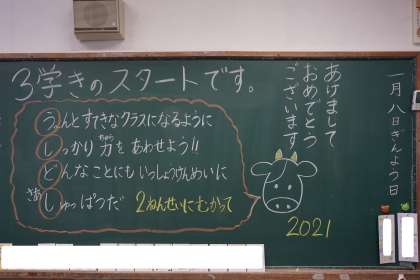 一月八日きんよう日
あけまして
おめでとう
ございます
3学きのスタートです。
うんとすてきなクラスになるように
ちから
しっかり力をあわせよう!!
どんなことにもいっしょうけんめいに
さあ しゅっぱつだ 2ねんせいにむかって
2021